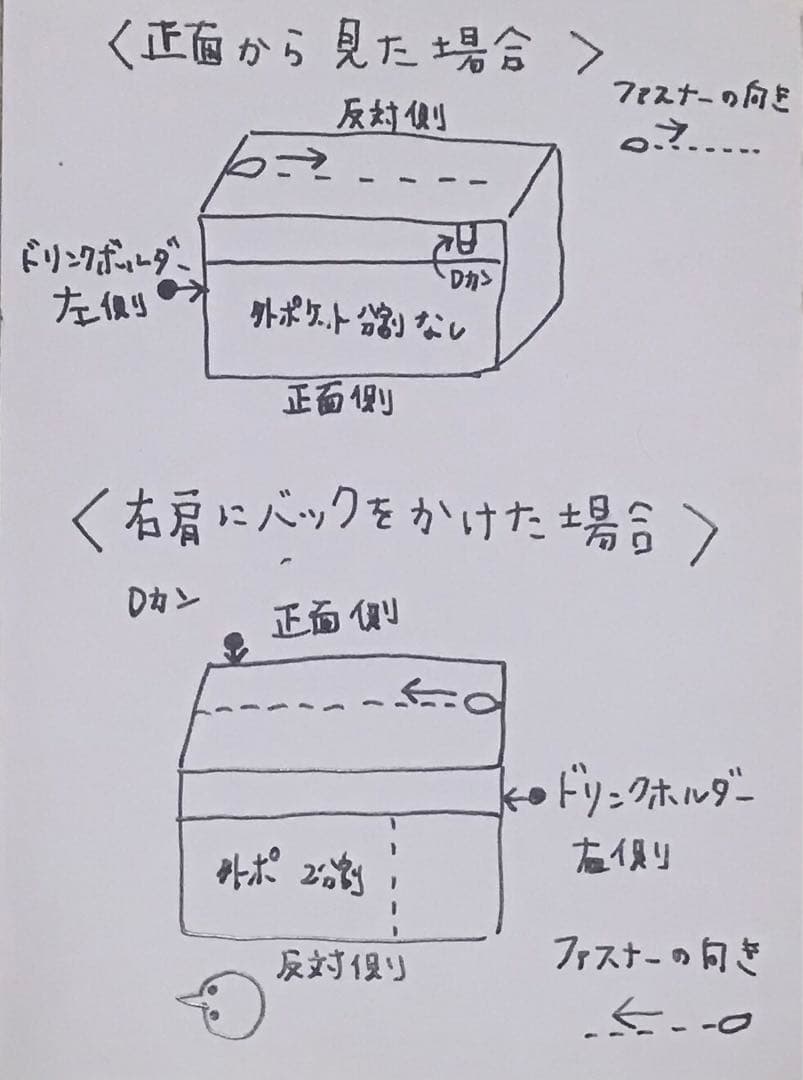 〈正面から見た場合〉
ファスナーの向き
反対側
ドリンクホルダー
左側
Dカン
外ポケット分割なし
正面側
〈右肩にバックをかけた場合〉
Dカン
正面側
ドリンクホルダー
右側
外ポ 2分割
反対側
ファスナーの向き